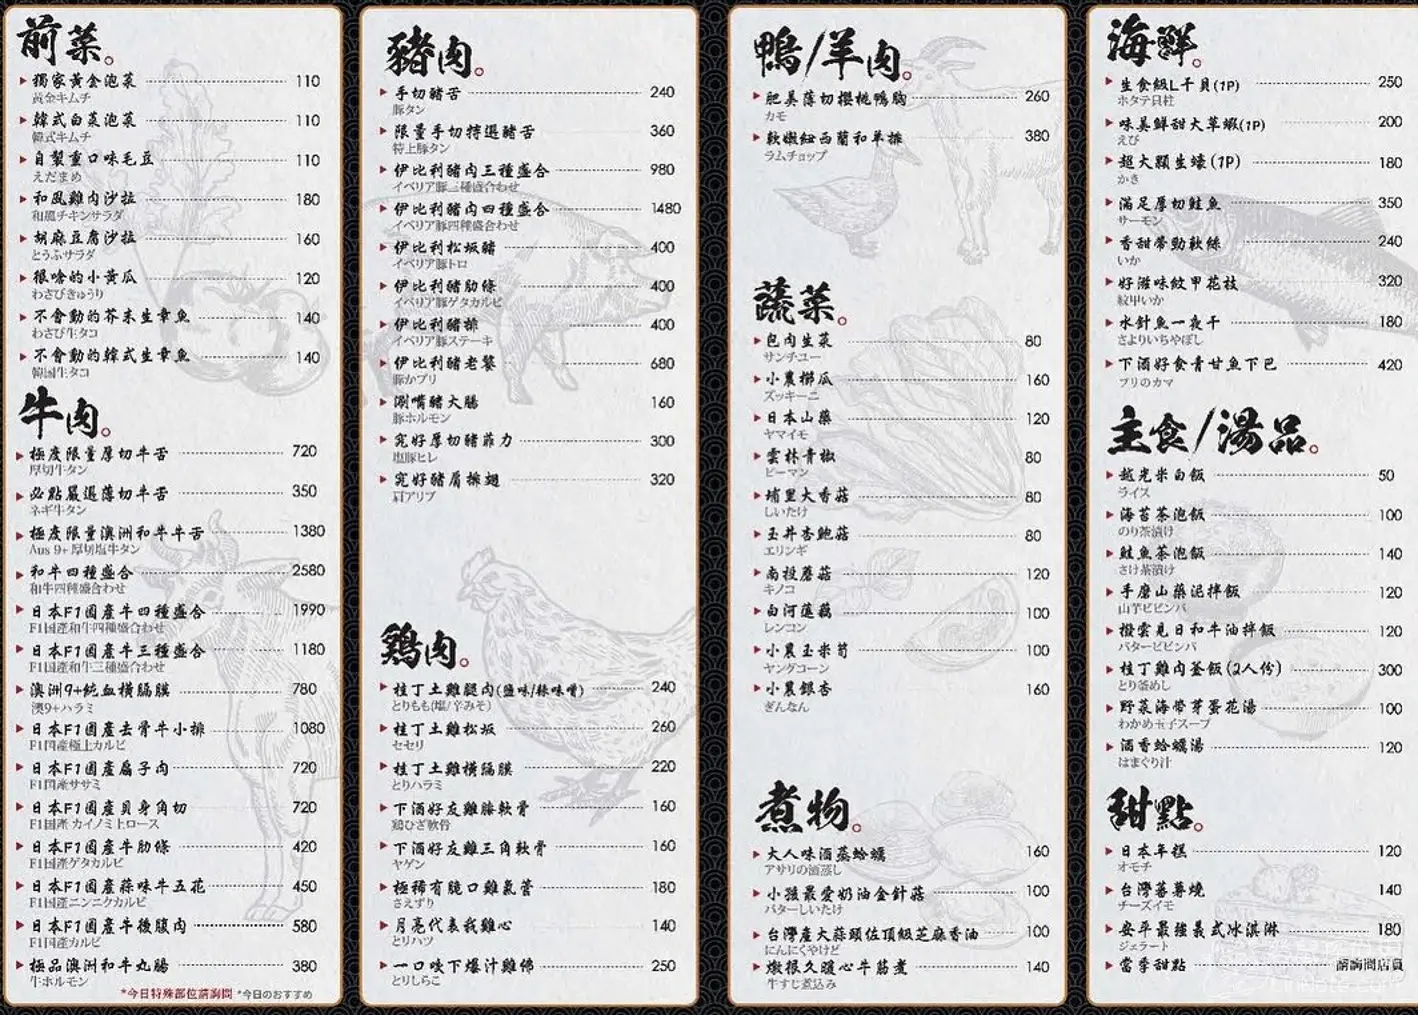 前菜。
獨家黃金泡菜 110
黃金キムチ
韓式白菜泡菜 110
韓式キムチ
自製重口味毛豆 110
えだまめ
和風雞肉沙拉 180
和風チキンサラダ
胡麻豆腐沙拉 160
とうふサラダ
很嗆的小黃瓜 120
わさびきゅうり
不會動的芥末生章魚 140
わさび生タコ
不會動的韓式生章魚 140
韓国生タコ
牛肉。
極度限量厚切牛舌 720
厚切牛タン
必點嚴選薄切牛舌 350
ネギ牛タン
極度限量澳洲和牛牛舌 1380
Aus 9+厚切塩牛タン
和牛四種盛合 2580
和牛四種盛合わせ
日本F1國產牛四種盛合 1990
F1国産和牛四種盛合わせ
日本F1國產牛三種盛合 1180
F1国産和牛三種盛合わせ
澳洲9+純血橫膈膜 780
澳9+ハラミ
日本F1國產去骨牛小排 1080
F1国産極上カルビ
日本F1國產扇子肉 720
F1国産ササミ
日本F1國產貝身角切 720
F1国産 カイノミ上ロース
日本F1國產牛肋條 420
F1国産ゲタカルビ
日本F1國產蒜味牛五花 450
F1国産ニンニクカルビ
日本F1國產牛後腹肉 580
F1国産カルビ
極品澳洲和牛丸腸 380
牛ホルモン
*今日特殊部位請詢問 *今日のおすすめ
豬肉。
手切豬舌 240
豚タン
限量手切特選豬舌 360
特上豚タン
伊比利豬肉三種盛合 980
イベリア豚三種盛合わせ
伊比利豬肉四種盛合 1480
イベリア豚四種盛合わせ
伊比利松坂豬 400
イベリア豚トロ
伊比利豬肋條 400
イベリア豚ゲタカルビ
伊比利豬排 400
イベリア豚ステーキ
伊比利豬老饕 680
豚かブリ
涮嘴豬大腸 160
豚ホルモン
究好厚切豬菲力 300
塩豚ヒレ
究好豬肩排翅 320
肩アリブ
鶏肉。
桂丁土雞腿肉(鹽味/辣味噌) 240
とりもも(塩/辛みそ)
桂丁土雞松坂 260
セセリ
桂丁土雞橫隔膜 220
とりハラミ
下酒好友雞膝軟骨 160
鶏ひざ軟骨
下酒好友雞三角軟骨 160
ヤゲン
極稀有脆口雞氣管 180
さえずり
月亮代表我雞心 140
とりハツ
一口咬下爆汁雞佛 250
とりしらこ
鴨/羊肉。
肥美薄切櫻桃鴨胸 260
カモ
軟嫩紐西蘭和羊排 380
ラムチョップ
蔬菜。
包肉生菜 80
サンチュー
小農櫛瓜 160
ズッキーニ
日本山藥 120
ヤマイモ
雲林青椒 80
ピーマン
埔里大香菇 80
しいたけ
玉井杏鮑菇 80
エリンギ
南投蘑菇 120
キノコ
白河蓮藕 100
レンコン
小農玉米筍 100
ヤングコーン
小農銀杏 160
ぎんなん
煮物。
大人味酒蒸蛤蠣 160
アサリの酒蒸し
小孩最愛奶油金針菇 100
バターしいたけ
台灣產大蒜頭佐頂級芝麻香油 100
にんにくやけど
燉很久暖心牛筋煮 140
牛すじ煮込み
海鮮。
生食級L干貝(1P) 250
ホタテ貝柱
味美鮮甜大草蝦(1P) 200
えび
超大顆生蠔(1P) 180
かき
滿足厚切鮭魚 350
サーモン
香甜帶勁軟絲 240
いか
好滋味紋甲花枝 320
紋甲いか
水針魚一夜干 180
さよりいちやぼし
下酒好食青甘魚下巴 420
ブリのカマ
主食/湯品。
越光米白飯 50
ライス
海苔茶泡飯 100
のり茶漬け
鮭魚茶泡飯 140
さけ茶漬け
手磨山藥泥拌飯 120
山芋ビビンバ
撥雲見日和牛油拌飯 120
バタービビンバ
桂丁雞肉釜飯(2人份) 300
とり釜めし
野菜海帶芽蛋花湯 100
わかめ玉子スープ
酒香蛤蠣湯 120
はまぐり汁
甜點。
日本年糕 120
オモチ
台灣蕃薯燒 140
チーズイモ
安平最強義式冰淇淋 180
ジェラート
當季甜點 請詢問店員